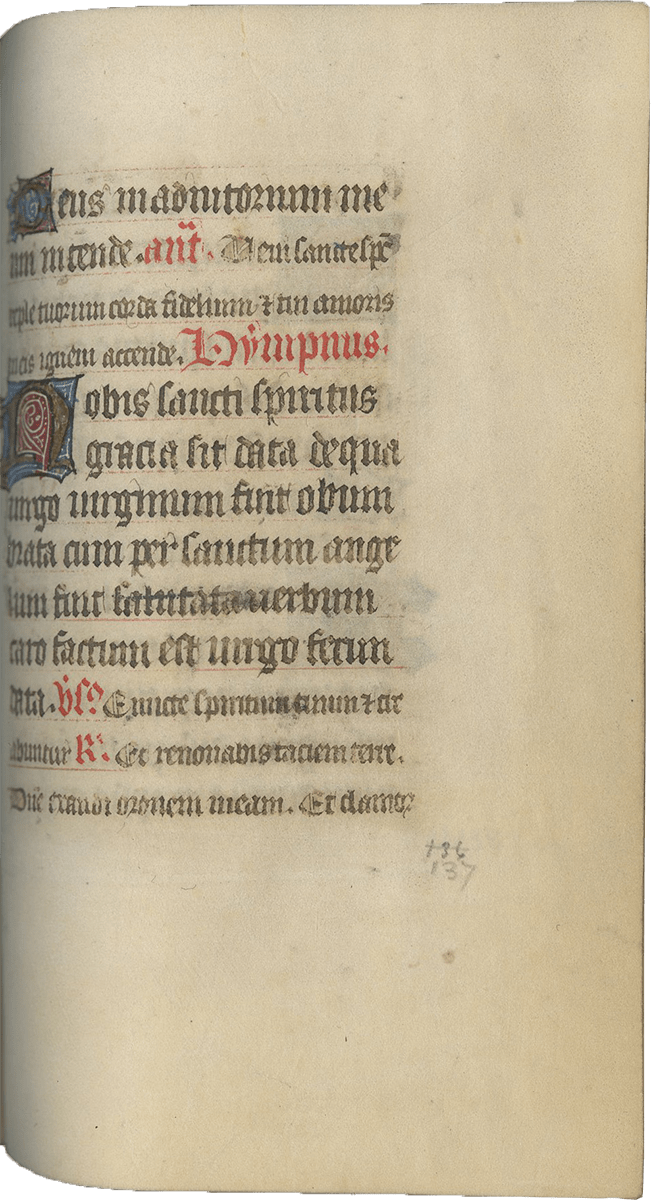 Deus in adiutorium me
um intende. ant̄. Veni sancte sp̄c
reple tuorum corda fidelium ⁊ tui amoris
in eis ignem accende. Hympnus.
Nobis sancti spiritus
gracia sit data de qua
uirgo uirginum fuit obum
brata cum per sanctum ange
lum fuit salutata uerbum
caro factum est uirgo fecun
data. v̄s. Emitte spiritum tuum ⁊ cre
abuntur R̄. Et renouabis faciem terre.
Dn̄e exaudi or̄onem meam. Et clamor
136
137